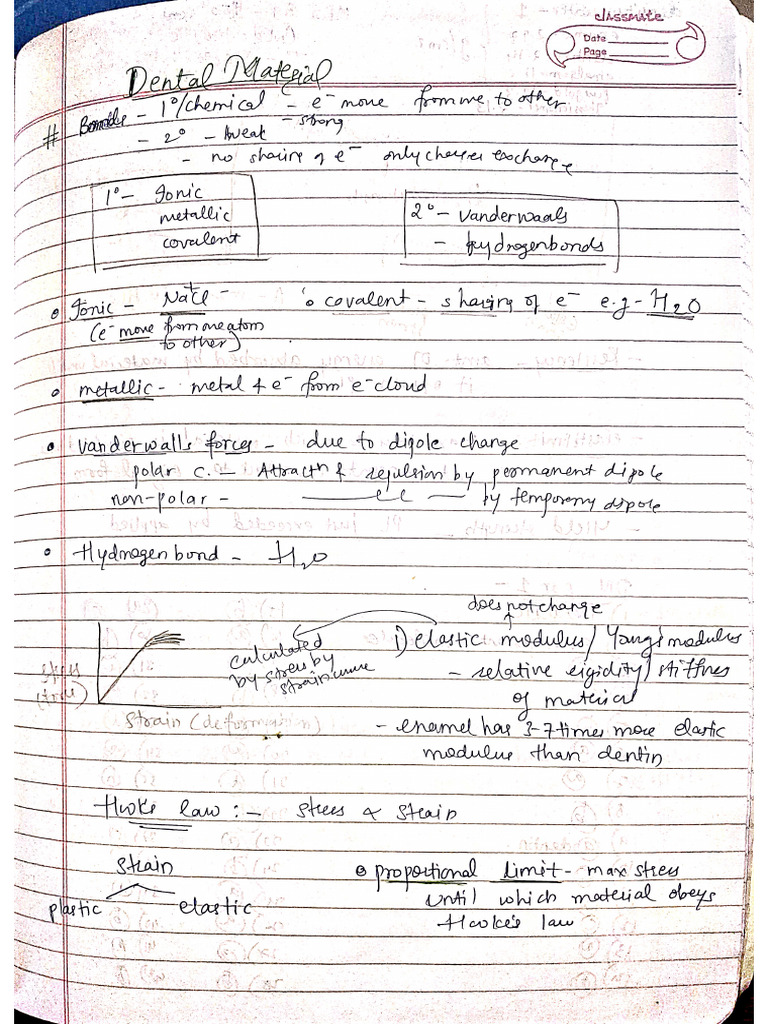 classmate
Date
Page
Dental Material
# Bonds - 1°/chemical - e⁻ move from one to other
- strong
- 2° - weak
- no sharing of e⁻ only charges exchange
1° - Ionic
metallic
covalent
2° - vanderwaals
- hydrogenbonds
• Ionic - Na⁺Cl⁻
(e⁻ move from one atom
to other)
• covalent - sharing of e⁻ e.g - H₂O
• metallic - metal + e⁻ from e⁻ cloud
• vanderwalls forces - due to dipole change
polar c. - Attractn & repulsion by permanent dipole
non-polar - —— cc —— by temporary dipole
• Hydrogen bond - H₂O
does not change
i) elastic modulus / Yongs modulus
- relative rigidity / stiffnes
of material
- enamel has 3-7 times more elastic
modulus than dentin
calculated
by stress by
strain curve
stress
(force)
strain (deformation)
Hooke law :- stress ∝ strain
strain
plastic elastic
• proportional limit - max stress
until which material obeys
Hooke's law